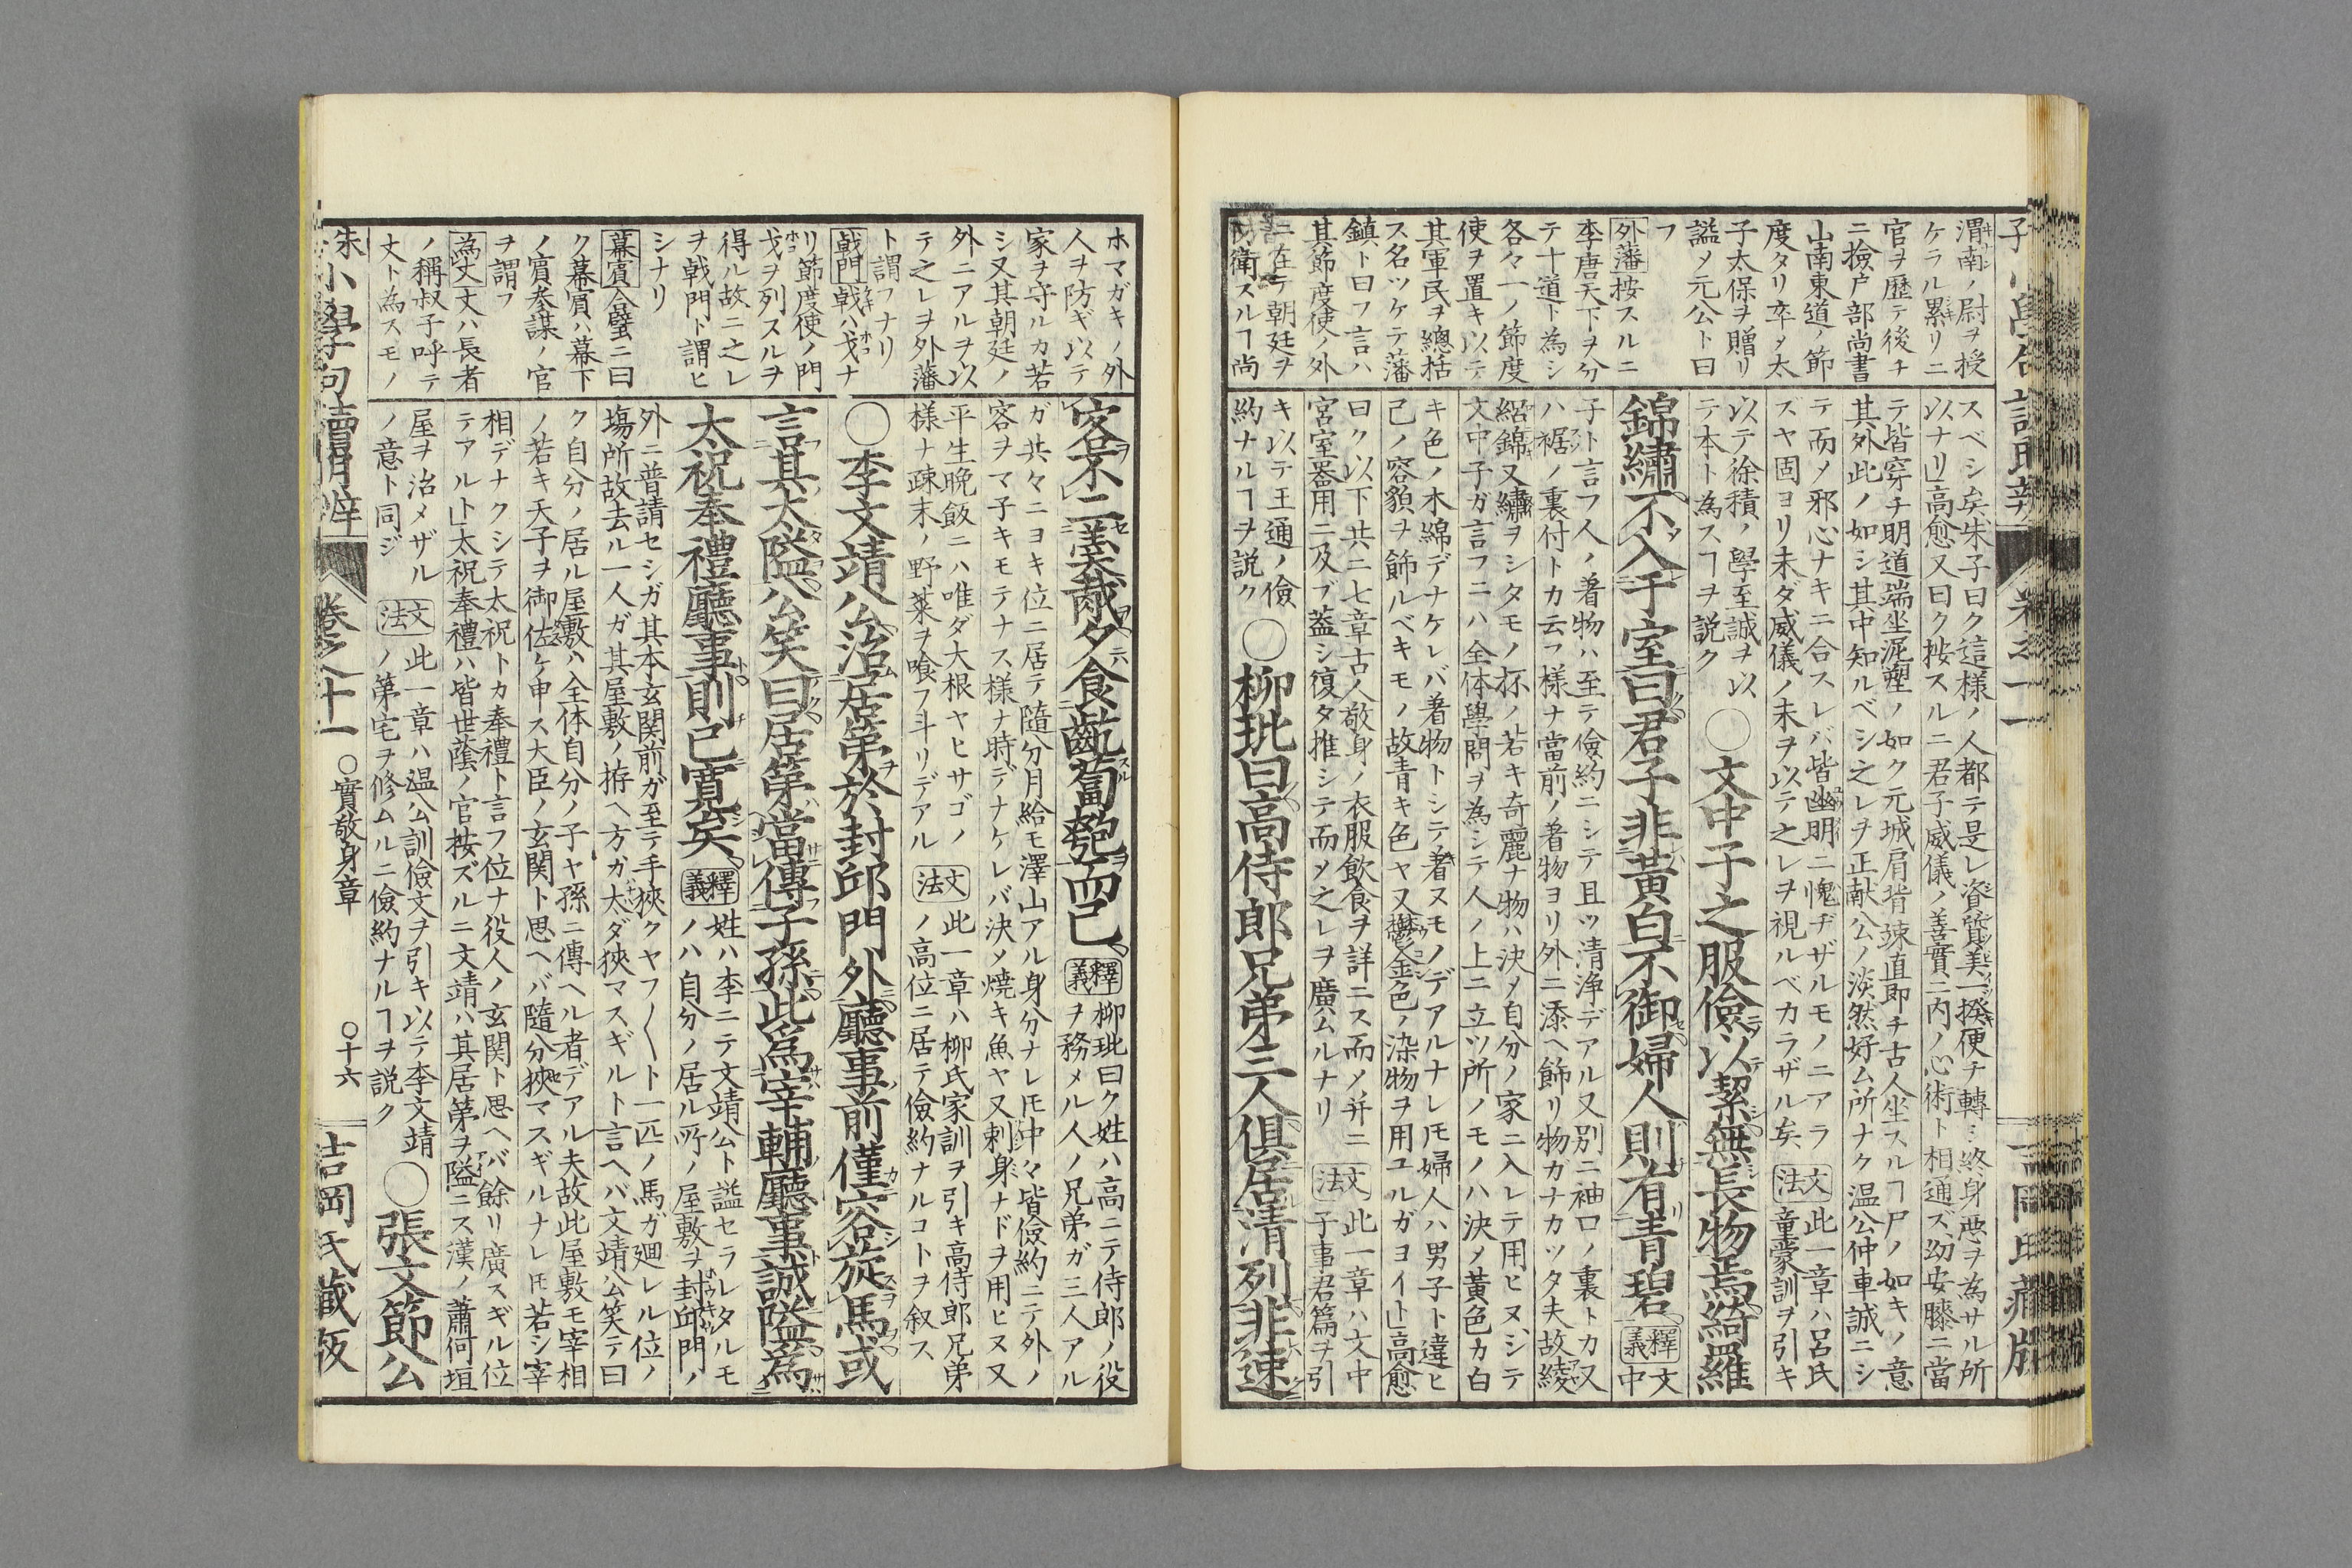 渭南ノ尉ヲ授
ケラル累リニ
官ヲ歴テ後チ
ニ撿戸部尚書
山南東道ノ節
度タリ卒ス太
子太保ヲ贈リ
謚メ元公ト曰
フ
外藩 按スルニ
李唐天下ヲ分
テ十道ト為シ
各々一ノ節度
使ヲ置キ以テ
其軍民ヲ總括
ス名ツケテ藩
鎮ト曰フ言ハ
其節度使ノ外
ニ在テ朝廷ヲ
防衛スルヿ尚
スベシ矣朱子曰ク這樣ノ人都テ是レ資質美一撥便チ轉ジ終身悪ヲ為サル所
以ナリ」高愈又曰ク按スルニ君子威儀ノ善實ニ内ノ心術ト相通ズ幼安膝ニ當
テ皆穿チ明道端坐泥塑ノ如ク元城肩背竦直即チ古人坐スルヿ尸ノ如キノ意
其外此ノ如シ其中知ルベシ之レヲ正献公ノ淡然好ム所ナク温公仲車誠ニシ
テ而メ邪心ナキニ合スレバ皆幽明ニ愧ヂザルモノニアラ 文法 此一章ハ呂氏
ズヤ固ヨリ未ダ威儀ノ未ヲ以テ之レヲ視ルベカラザル矣 童蒙訓ヲ引キ
以テ徐積ノ學至誠ヲ以
テ本ト為スヿヲ説ク
〇文中子之服儉以潔無長物焉綺羅
錦繡不入于室曰君子非黄白不御婦人則有青碧 釋義 文中
子ト言フ人ノ着物ハ至テ儉約ニシテ且ツ清浄デアル又別ニ袖口ノ裏トカ又
ハ裾ノ裏付トカ云フ樣ナ當前ノ着物ヨリ外ニ添ヘ飾リ物ガナカツタ夫故綾
紹錦又繡ヲシタモノ抔ノ若キ奇麗ナ物ハ決メ自分ノ家ニ入レテ用ヒヌシテ
文中子ガ言フニハ全体學問ヲ為シテ人ノ上ニ立ツ所ノモノハ決メ黄色カ白
キ色ノ木綿デナケレバ着物トシテ着ヌモノデアルナレ𪜈婦人ハ男子ト違ヒ
己ノ容貌ヲ飾ルベキモノ故青キ色ヤ又欝金色ノ染物ヲ用ユルガヨイト」高愈
曰ク以下共ニ七章古人敬身ノ衣服飲食ヲ詳ニス而メ并ニ 文法 此一章ハ文中
宮室器用ニ及ブ蓋シ復タ推シテ而メ之レヲ廣ムルナリ 子事君篇ヲ引
キ以テ王通ノ儉
約ナルヿヲ説ク
〇柳玭曰高侍郎兄弟三人俱居清列非速
ホマガキノ外
人ヲ防ギ以テ
家ヲ守ルカ若
シ又其朝廷ノ
外ニアルヲ以
テ之レヲ外藩
ト謂フナリ
戟門 戟ハ戈ナ
リ節度使ノ門
戈ヲ列スルヲ
得ル故ニ之レ
ヲ戟門ト謂ヒ
シナリ
幕賓 合璧ニ曰
ク幕賓ハ幕下
ノ賓参謀ノ官
ヲ謂フ
為丈 丈ハ長者
ノ稱叔子呼テ
丈ト為スモノ
客不二羹胾夕食齕蔔匏而已 釋義 柳玭曰ク姓ハ高ニテ侍郎ノ役
ヲ務メル人ノ兄弟ガ三人アル
ガ共々ニヨキ位ニ居テ隨分月給モ澤山アル身分ナレ𪜈中々皆儉約ニテ外ノ
容ヲマ子キモテナス樣ナ時デナケレバ決メ燒キ魚ヤ又刺身ナドヲ用ヒヌ又
平生晩飯ニハ唯ダ大根ヤヒサゴノ 文法 此一章ハ柳氏家訓ヲ引キ高侍郎兄弟
樣ナ疎末ノ野菜ヲ喰フ斗リデアル ノ高位ニ居テ儉約ナルコトヲ叙ス
〇李文靖公治居第於封邱門外廳事前僅容旋馬或
言其太隘公笑曰居第當傳子孫此為宰輔廳事誠隘為
太祝奉禮廳事則已寛矣 釋義 姓ハ李ニテ文靖公ト謚セラレタルモ
ノハ自分ノ居ル所ノ屋敷ヲ封邱門ノ
外ニ普請セシガ其本玄関前ガ至テ手狹クヤフ〳〵ト一匹ノ馬ガ廻レル位ノ
塲所故去ル一人ガ其屋敷ノ拵ヘ方ガ太ダ狹マスギルト言ヘバ文靖公笑テ曰
ク自分ノ居ル屋敷ハ全体自分ノ子ヤ孫ニ傳ヘル者デアル夫故此屋敷モ宰相
ノ若キ天子ヲ御佐ケ申ス大臣ノ玄関ト思ヘバ隨分狹マスギルナレ𪜈若シ宰
相デナクシテ太祝トカ奉禮ト言フ位ナ役人ノ玄関ト思ヘバ餘リ廣スギル位
テアルト」太祝奉禮ハ皆世蔭ノ官按ズルニ文靖ハ其居第ヲ隘ニス漢ノ蕭何垣
屋ヲ治メザル 文法 此一章ハ温公訓儉文ヲ引キ以テ李文靖
ノ意ト同ジ ノ第宅ヲ修ムルニ儉約ナルヿヲ説ク
〇張文節公
朱小學句讀明辨 卷之十一 〇實敬身章 〇十六 吉岡氏藏版